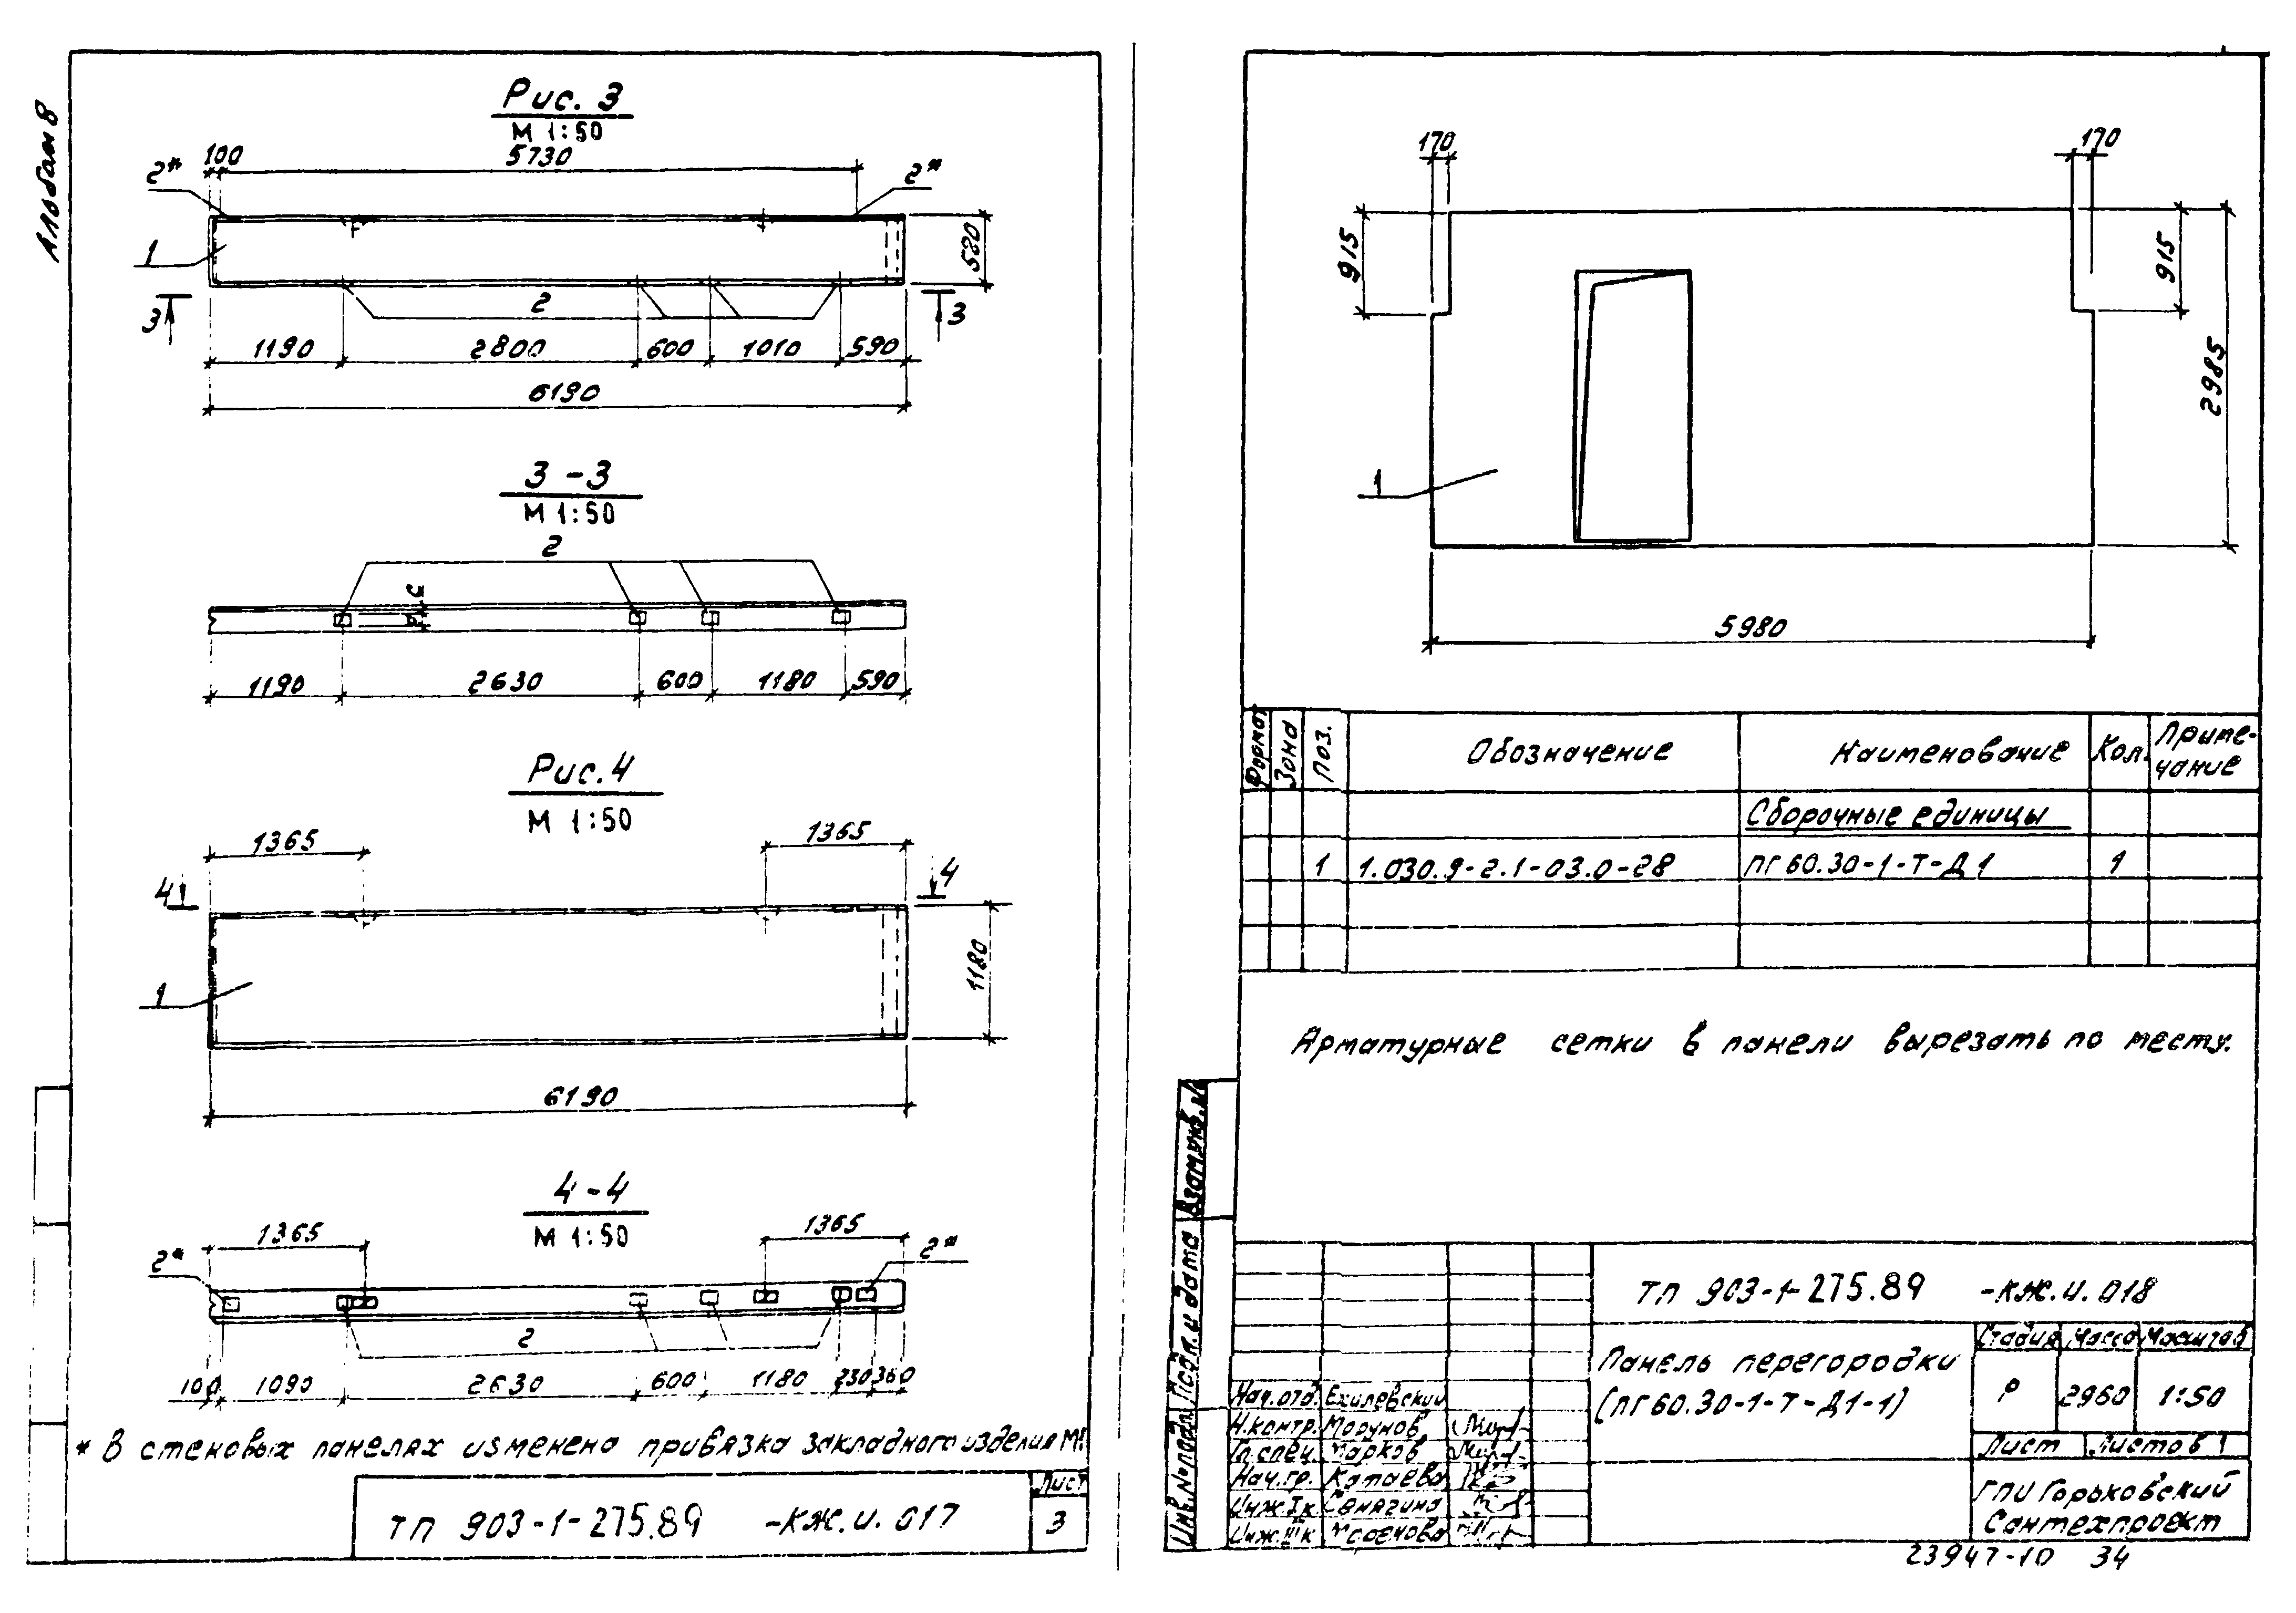 Альбом 8
Рис. 3
М 1:50
100
5730
2*
2*
1
580
3
2
3
1190
2800
600
1010
590
6190
3-3
М 1:50
2
1190
2630
600
1180
590
Рис. 4
М 1:50
1365
1365
4
4
1
1180
6190
4-4
М 1:50
1365
1365
2*
2*
2
100
1090
2630
600
1180
230
360
* В стеновых панелях изменена привязка закладного изделия М1
ТП 903-1-275.89 -КЖ.И.017
Лист
3
170
170
915
915
2985
1
5980
Формат
Зона
Поз.
Обозначение
Наименование
Кол.
Приме-
чание
Сборочные единицы
1
1.030.9-2.1-03.0-28
ПГ60.30-1-Т-Д1
1
Арматурные сетки в панели вырезать по месту.
Взам.инв.№
Подп. и дата
Инв.№подл.
ТП 903-1-275.89 -КЖ.И.018
Панель перегородки
(ПГ60.30-1-Т-Д1-1)
Стадия
Масса
Масштаб
Р
2960
1:50
Лист
Листов 1
ГПИ Горьковский
Сантехпроект
Нач.отд. Ехилевский
Н.контр. Морунов
Гл.спец. Марков
Нач.гр. Катаева
Инж.Iк Санягина
Инж.IIIк
23947-10 34